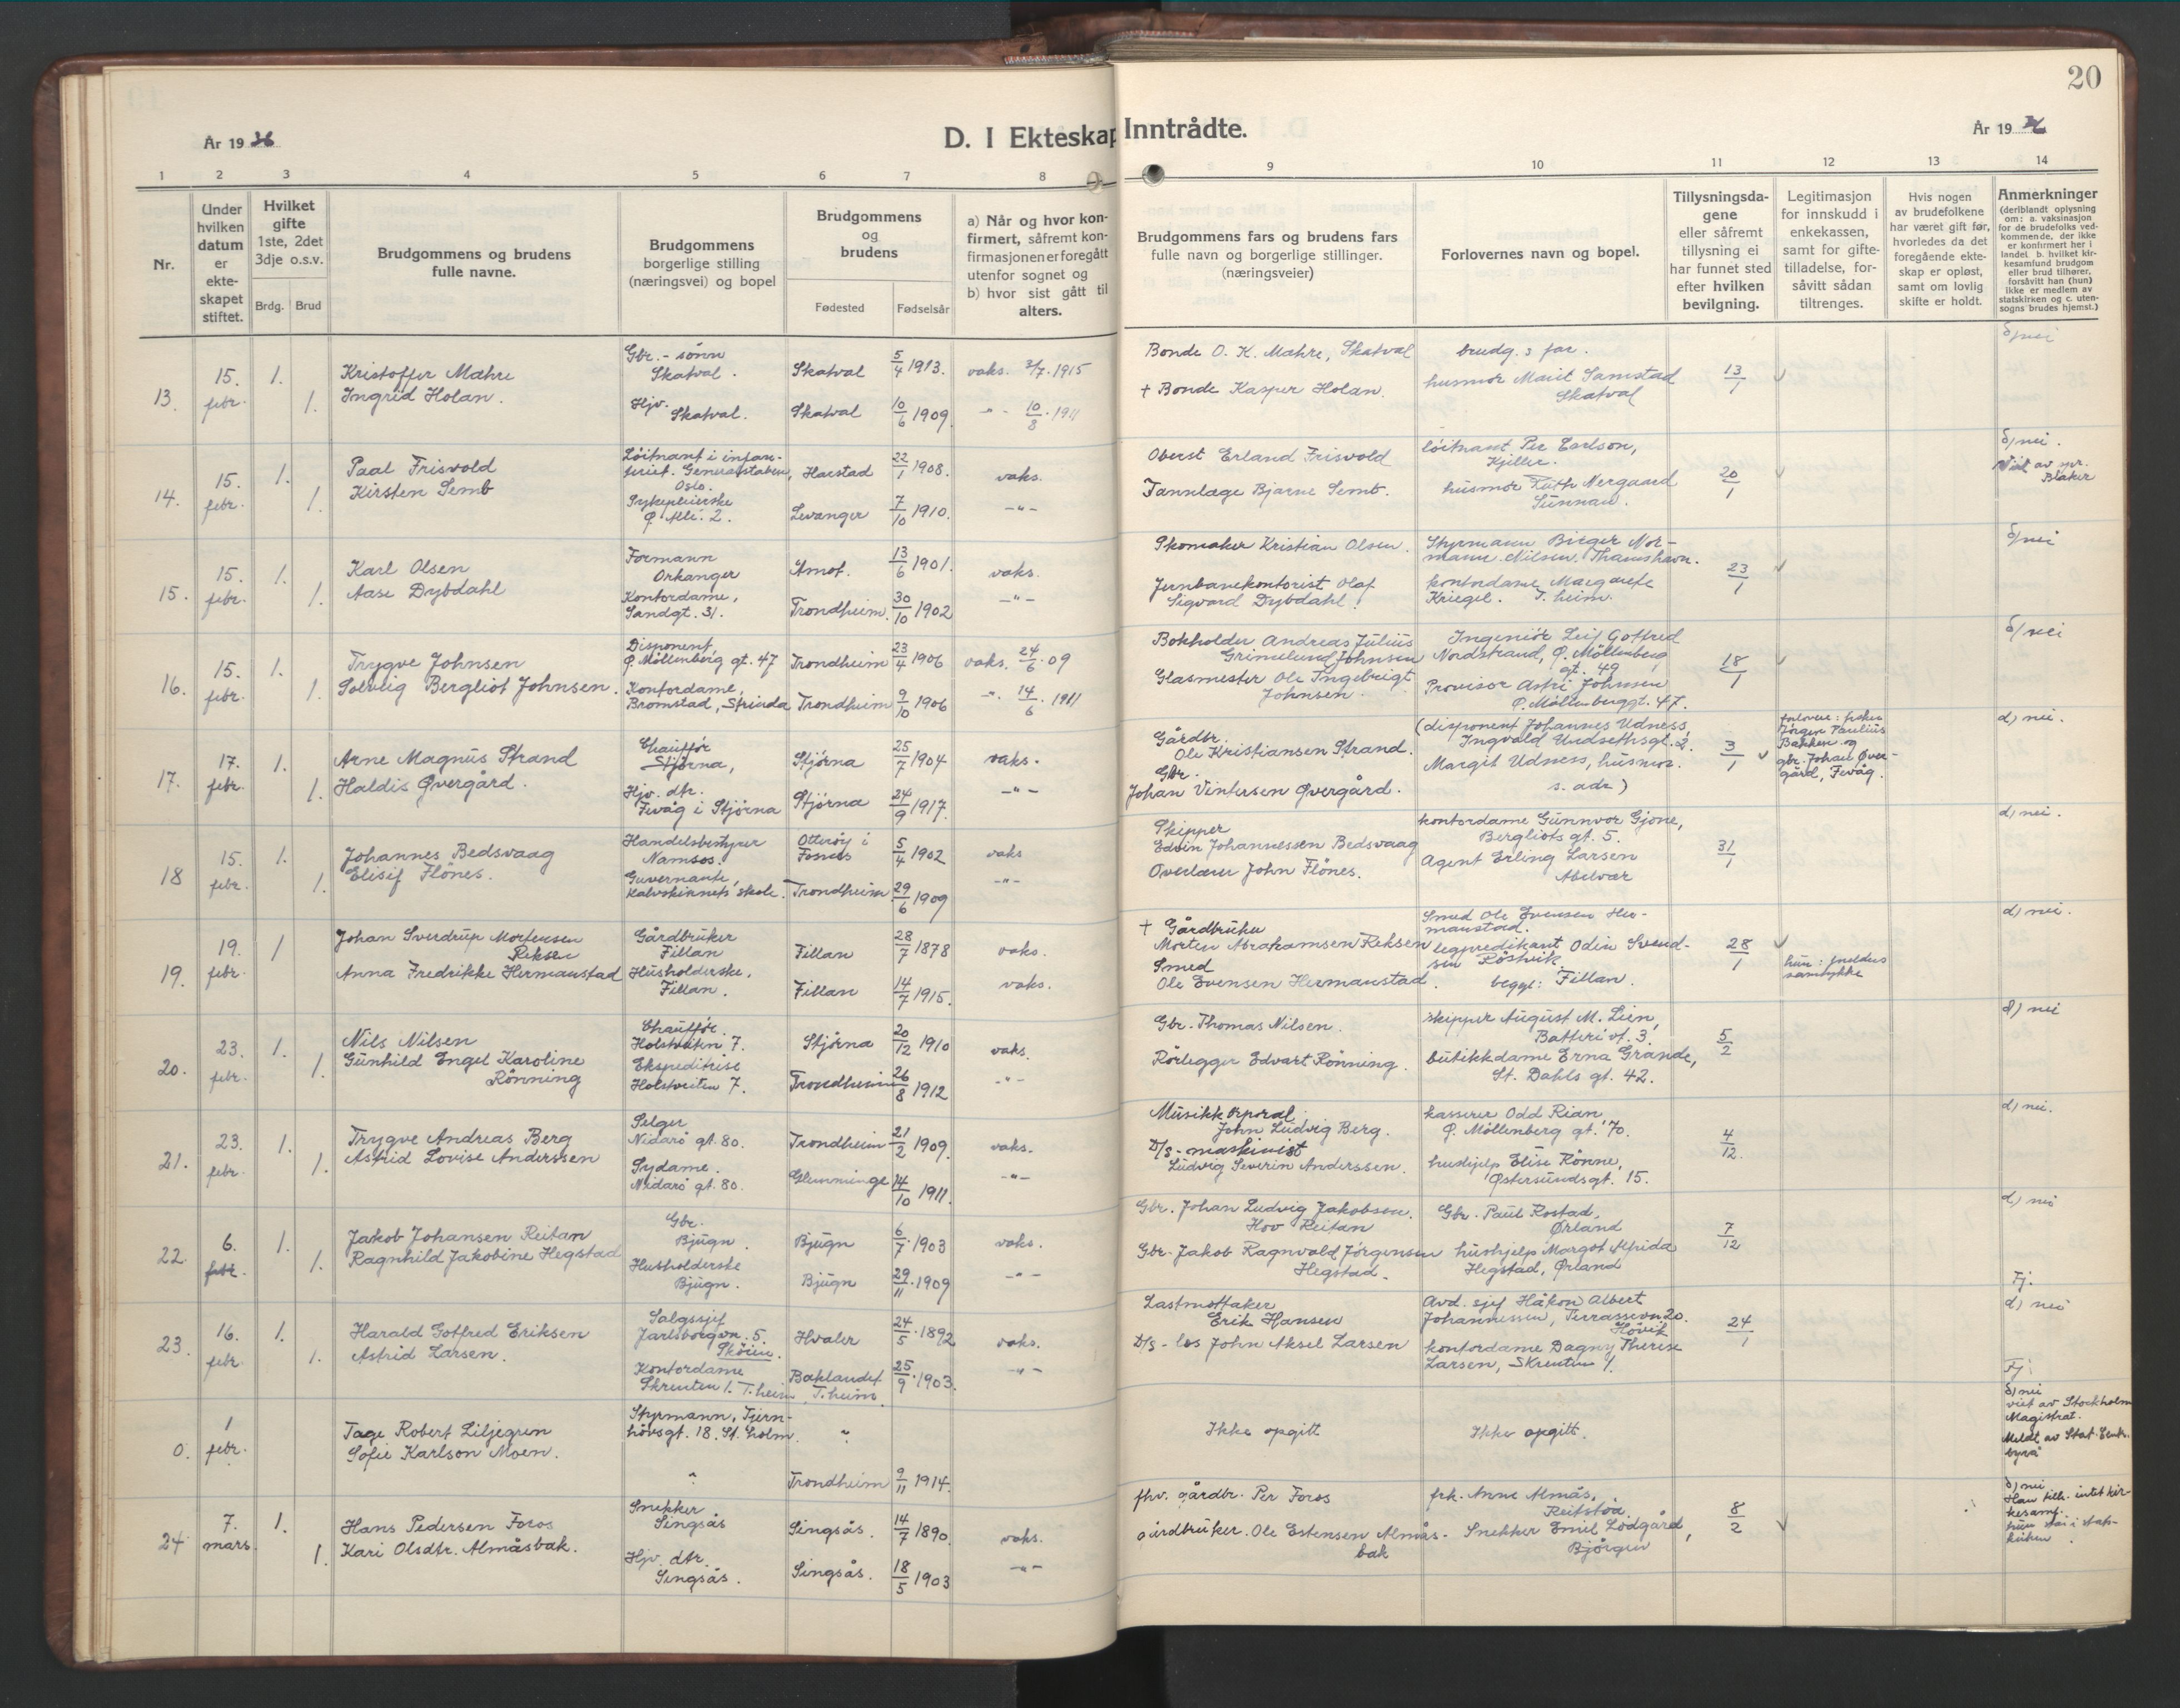 20
År 19 36
D. I Ekteskap Inntrådte.
År 19 36
1 2 3 4 5 6 7 8 9 10 11 12 13 14
Nr.
Under hvilken datum er ekte- skapet stiftet.
Hvilket gifte 1ste, 2det 3dje o.s.v.
Brdg. Brud
Brudgommens og brudens fulle navne.
Brudgommens borgerlige stilling (næringsvei) og bopel
Brudgommens og brudens
Fødested Fødselsår
a) Når og hvor kon- firmert, såfremt kon- firmasjonen er foregått utenfor sognet og b) hvor sist gått til alters.
Brudgommens fars og brudens fars fulle navn og borgerlige stillinger. (næringsveier)
Forlovernes navn og bopel.
Tillysningsda- gene eller såfremt tillysning ei har funnet sted efter hvilken bevilgning.
Legitimasjon for innskudd i enkekassen, samt for gifte- tilladelse, for- såvitt sådan tiltrenges.
Hvis nogen av brudefolkene har været gift før, hvorledes da det foregående ekte- skap er opløst, samt om lovlig skifte er holdt.
Anmerkninger (deriblandt oplysning om: a. vaksinasjon for de brudefolks ved- kommende, der ikke er konfirmert her i landet. b. hvilket kir- kesamfund brudgom eller brud tilhører, forsåvitt han (hun) ikke er medlem av statskirken og c. uten- sogns brudes hjemst.)
13. 15. febr. 1. 1.
Kristoffer Mæhre
Ingrid Holan.
Gbr.-sønn
Skatval.
Hjv.
Skatval.
Skatval 5/4 1913. vaks. 3/7. 1915
Skatval 10/6 1909. -"- 10/8. 1911
Bonde O. K. Mæhre, Skatval
† Bonde Kasper Holan.
brudg.s far.
husmor Marit Samstad
Skatval
13/1
d) nei
14. 15. febr. 1. 1.
Paal Frisvold
Kirsten Semb
Løitnant i infan-
teriet. Generalstaben,
Oslo.
Sykepleierske
Ø. Alle. 2.
Harstad 22/1 1908. vaks.
Levanger 7/10 1910. -"-
Oberst Erland Frisvold
Tannlæge Bjarne Semb.
løitnant Per Carlson,
Kjeller.
husmor Ruth Nergaard
Sunnan.
20/1
d) nei.
Viet av spr.
Blaker
15. 15. febr. 1. 1.
Karl Olsen
Aase Drybdahl
Formann
Orkanger
Kontordame,
Sandgt. 31.
Åmot. 13/6 1901. vaks.
Trondheim. 30/10 1902 -"-
Skomaker Kristian Olsen.
Jernbanekontorist Olaf
Sigvard Drybdahl.
Styrmann Birger Nor-
mann Nilsen. Thamshavn.
kontordame Margarete
Kriegel. T.heim.
23/1
d) nei
16. 15. febr. 1. 1.
Trygve Johnsen
Solveig Bergliot Johnsen.
Disponent
Ø Møllenberg gt. 47
Kontordame,
Bromstad, Strinda
Trondheim 23/4 1906 vaks. 24/6. 09
Trondheim 9/10 1906 -"- 14/6. 1911
Bokholder Andreas Julius
Grimelund Johnsen
Glasmester Ole Ingebrigt
Johnsen.
Ingeniør Leif Gotfred
Nordstrand, Ø. Møllenberg
gt. 49
Provisor Astri Johnsen
Ø. Møllenberggt. 47.
18/1
d) nei
17. 17. febr. 1. 1.
Arne Magnus Strand
Haldis Øvergård.
Chauffør
Stjørna,
Hjv. dtr.
Fevåg i Stjørna
Stjørna 25/7 1904 vaks.
Stjørna 24/9 1917. -"-
Gårdbr.
Ole Kristiansen Strand.
Gbr.
Johan Vintersen Øvergård.
(disponent Johannes Udness,
Ingvald Undsethsgt. 2.
Margit Udness, husmor.
s. adr)
3/1
forlovere: fisker
Jørgen Paulius
Bakken og
gbr. Johan Øver-
gård, Fevåg.
d) nei.
18 15. febr. 1. 1.
Johannes Bedsvaag
Elisif Flønes.
Handelsbestyrer
Namsos.
Guvernante,
Kalvskinnets skole.
Otterøy i
Fosnes 5/4 1902 vaks
Trondheim 29/6 1909 -"-
Skipper
Edvin Johannessen Bedsvaag
Overlærer John Flønes.
kontordame Gunnvor Gjone,
Bergliots gt. 5.
Agent Erling Larsen
Abelvær
31/1
d) nei.
19. 19. febr. 1
Johan Sverdrup Mortensen
Reksen
Anna Fredrikke Hermanstad
Gårdbruker
Fillan
Husholderske,
Fillan.
Fillan 28/7 1878 vaks.
Fillan 14/7 1915. vaks.
† Gårdbruker
Morten Abrahamsen Reksen
Smed
Ole Evensen Hermanstad.
Smed Ole Evensen Her-
manstad.
legpredikant Odin Svend-
sen Røstvik
begge: Fillan.
28/1
hun: foreldres
samtykke
d) nei.
20. 23. febr. 1. 1.
Nils Nilsen
Gunhild Engel Karoline
Rønning
Chauffør.
Holstveiten 7.
Ekspeditrise
Holstveiten 7.
Stjørna 20/12 1910 vaks.
Trondheim 26/8 1912 -"-
Gbr. Thomas Nilsen.
Rørlegger Edvart Rønning.
skipper August M. Lien,
Batteri vt. 3.
butikkdame Erna Grande,
St. Dahls gt. 42.
5/2
d) nei
21. 23. febr. 1. 1.
Trygve Andreas Berg
Astrid Lovise Anderssen
Selger
Nidarø gt. 80.
Sydame.
Nidarø gt. 80.
Trondheim 21/2 1909. vaks.
Glumminge 14/10 1911. -"-
Musikkorporal
John Ludvig Berg.
D/s-maskinist
Ludvig Severin Anderssen.
kasserer Odd Rian
Ø. Møllenberg gt. 70.
hushjelp Elise Rønne,
Østersundsgt. 15.
4/12.
d) nei.
22. 6. febr. 1. 1.
Jakob Johansen Reitan
Ragnhild Jakobine Hegstad
Gbr.
Bjugn.
Husholderske
Bjugn.
Bjugn 6/7 1903 vaks.
Bjugn 29/11. 1909 -"-
Gbr. Johan Ludvig Jakobsen.
Hov Reitan
Gbr. Jakob Ragnvald Jørgensen
Hegstad.
Gbr. Paul Rostad,
Ørland
hushjelp Margot Alfrida
Hegstad, Ørland
7/12
d) nei
23. 16. febr. 1. 1.
Harald Gotfred Eriksen
Astrid Larsen.
Salgssjef
Jarlsborgvn. 5.
Skøien.
Kontordame
Skrenten 1. T.heim
Hvaler 24/5. 1892 vaks.
Baklandet
T.heim. 25/9. 1903. -"-
Lastmottaker
Erik Hansen
D/s-los John Aksel Larsen
Avd. sjef Håkon Albert
Johannessen, Terrassevn 20.
Høvik
kontordame Dagny Therese
Larsen, Skrenten 1.
24/1
Fj.
d) nei
0. 1 febr.
Tage Robert Liljegren
Sofie Karlson Moen.
Styrmann, Tjern-
høvsgt. 18. St.holm.
"
" Trondheim 9/11 1914.
Ikke opgitt
Ikke opgitt.
Fj.
d) nei
viet av Stockholm
Magistrat.
Meldt av Stat. Sent.
byrå
24 7. mars 1. 1.
Hans Pedersen Foros
Kari Olsdtr. Almåsbak.
Snekker
Singsås
Hjv. dtr.
Singsås.
Singsås. 14/7 1890. vaks.
Singsås. 18/5 1903 -"-
fhv. gårdbr. Per Foros
gårdbruker. Ole Estensen Almås-
bak
frk. Anne Almås,
Reitstøa.
Snekker Emil Lødgård,
Bjørgen
8/2
d) nei
Han tilh. intet kir-
kesamf.
hun står i stats-
kirken.